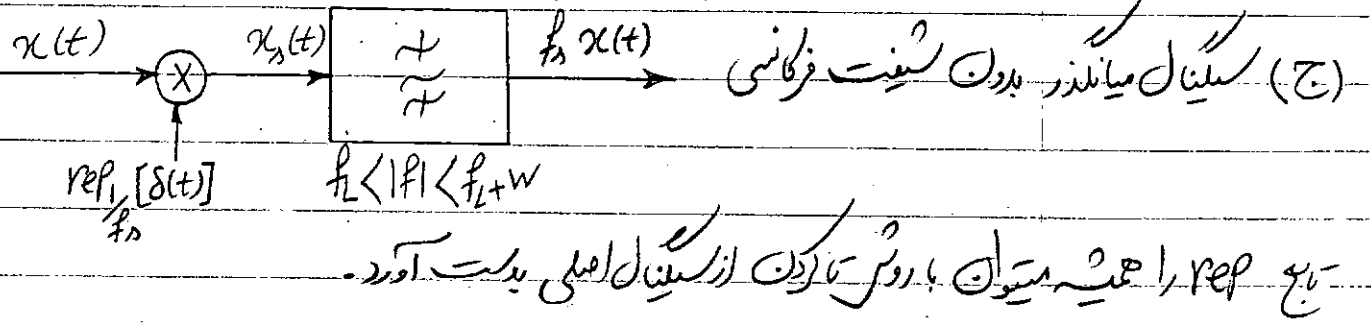 x(t) x_s(t) f_s x(t)
(ج) سیگنال میانگذر بدون شیفت فرکانسی
rep_{1/f_s}[δ(t)] f_L<|f|<f_L+W
تابع rep را همیشه میتوان با روش تا کردن از سیگنال اصلی بدست آورد.